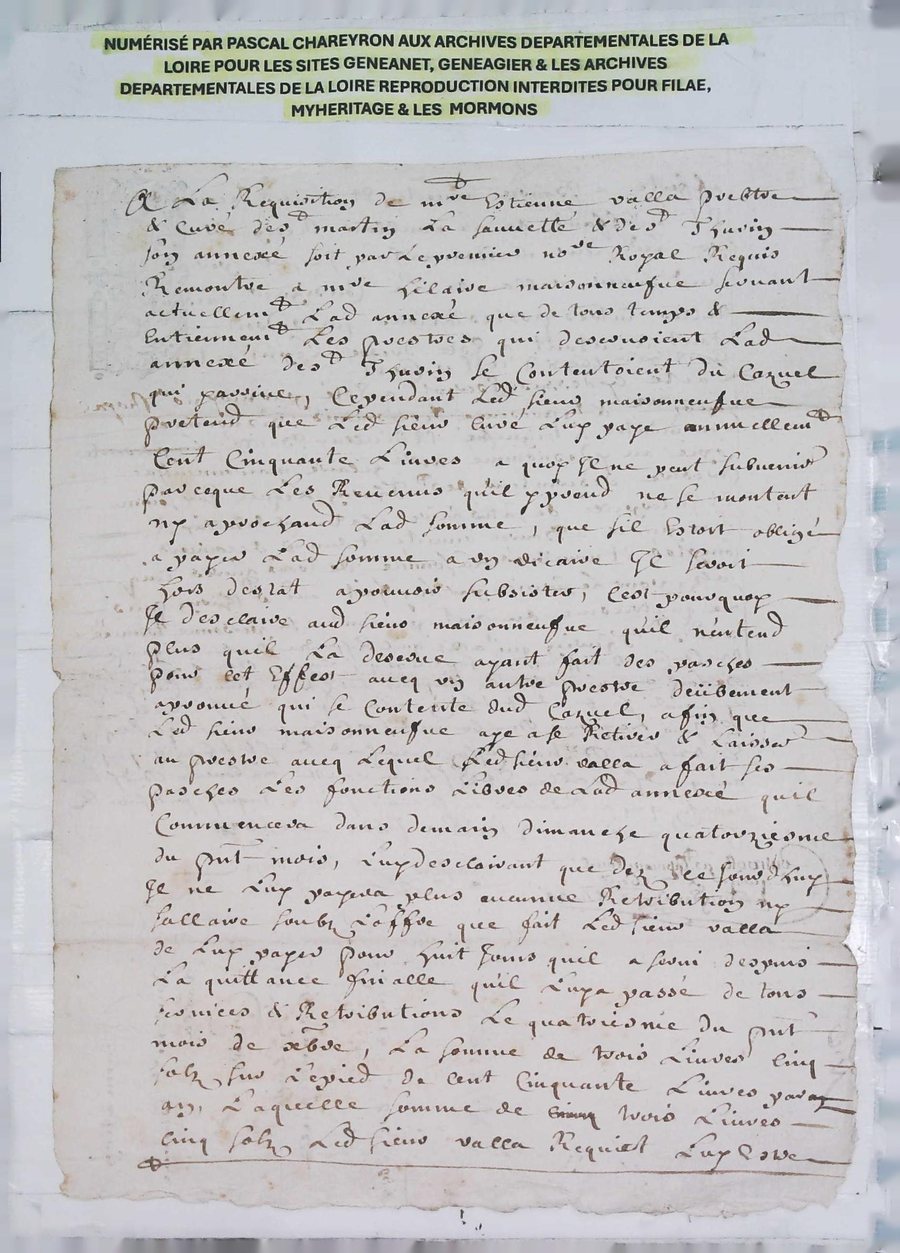 NUMÉRISÉ PAR PASCAL CHAREYRON AUX ARCHIVES DEPARTEMENTALES DE LA
LOIRE POUR LES SITES GENEANET, GENEAGIER & LES ARCHIVES
DEPARTEMENTALES DE LA LOIRE REPRODUCTION INTERDITES POUR FILAE,
MYHERITAGE & LES MORMONS
A La Requisition de mre Estienne valla prebtre
& Curé de st martin La sauveté & de st Thurin
son annexé soit par Le premier nore Royal Requis
Remontre a mre hilaire maisonneufue seruant
actuellemt Lad annexé que de tous temps &
entienement Les prestres qui desseruoient Lad
annexé de st Thurin se Contentoient du Cazuel
qui parvine, Cependant Led sieur maisonneufue
pretend que Led sieur Curé Luy paye annuellemt
Cent Cinquante Liures a quoy Il ne peut subuenir
parceque Les Reuenus qu'il y prend ne se montent
ny aprochand Lad somme, que sil estoit obligé
a payer Lad somme a vn vicaire Il seroit
hors destat a pouuoir subsister, Cest pourquoy
Il desclaire aud sieur maisonneufue quil n'entend
plus quil La desserue ayant fait des pasches
pour cet Effect aueq vn autre prestre deübement
aprouué qui se Contente dud Cazuel, afin que
Led sieur maisonneufue aye a se Retirer & Laisser
au prestre aueq Lequel Led sieur valla a fait ses
pasches Les fonctions Libres de Lad annexé quil
Commencera dans demain dimanche quatorziesme
du pnt mois, Luy desclairant que dez ce Jourdhuy
Il ne Luy payera plus aucunne Retribution ny
sallaire soubz L'offre que fait Led sieur valla
de Luy payer pour huit Jours quil a serui despuis
La quittance finialle qu'il Luy a passé de tous
seruices & Retributions Le quatriesme du pnt
mois de xbre, La somme de trois Liures Cinq
solz sur Le pied de Cent Cinquante Liures par
an, Laquelle somme de trois Liures
Cinq solz Led sieur valla Requiert Luy